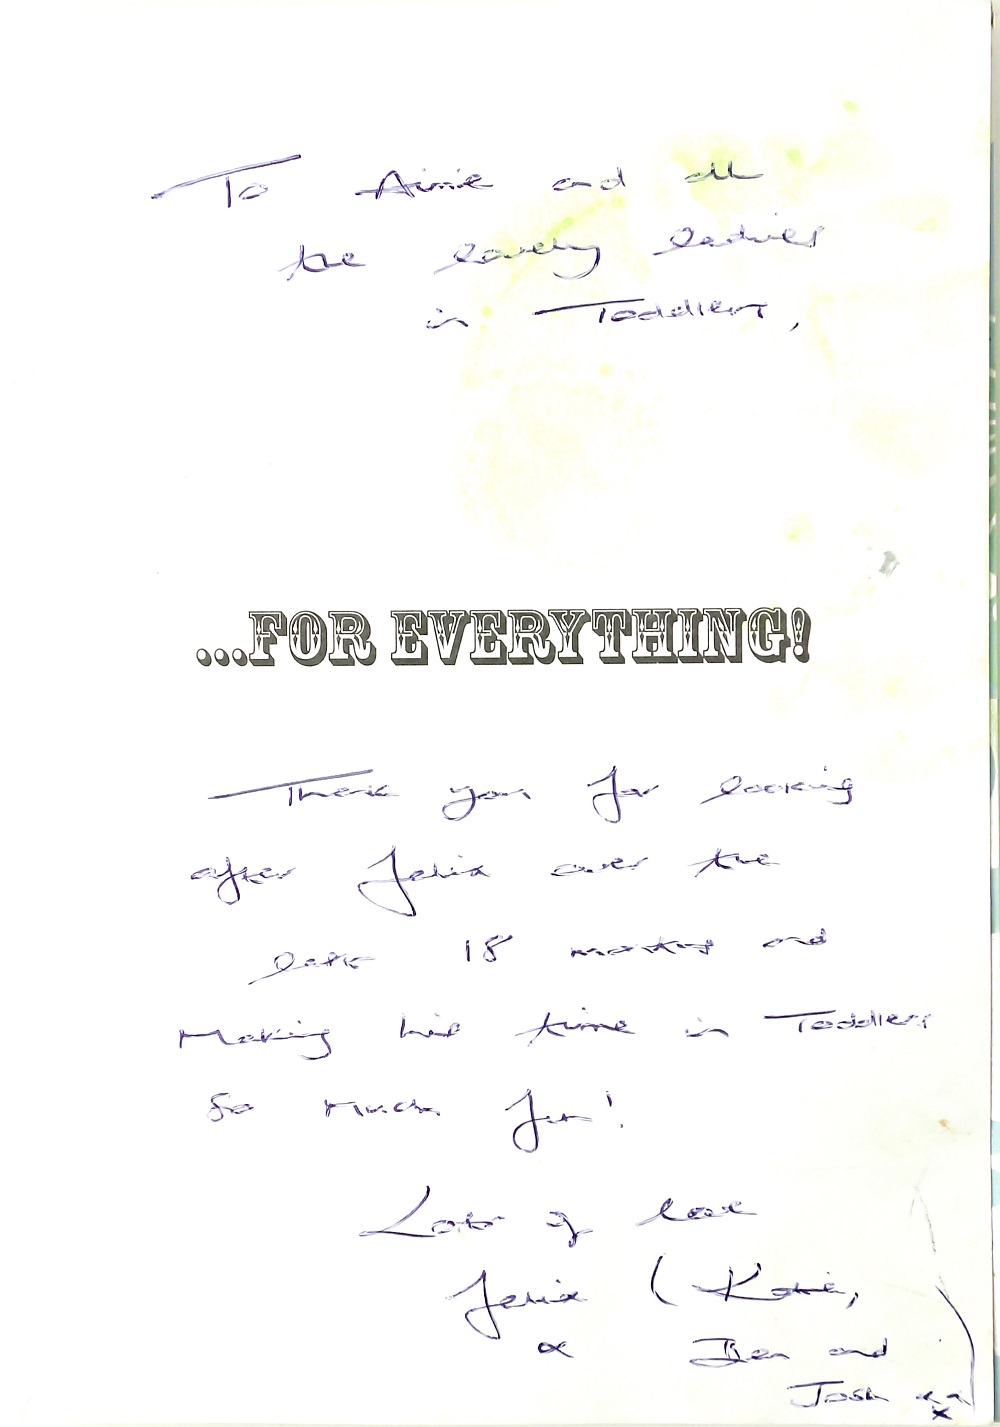 To Aimie and all
the lovely ladies
in Toddlers,
...FOR EVERYTHING!
Thank you for looking
after Felix over the
last 18 months and
Making his time in Toddlers
so much fun!
Lots of love
Felix (Katie,
x Ben and
Josh xx)
x